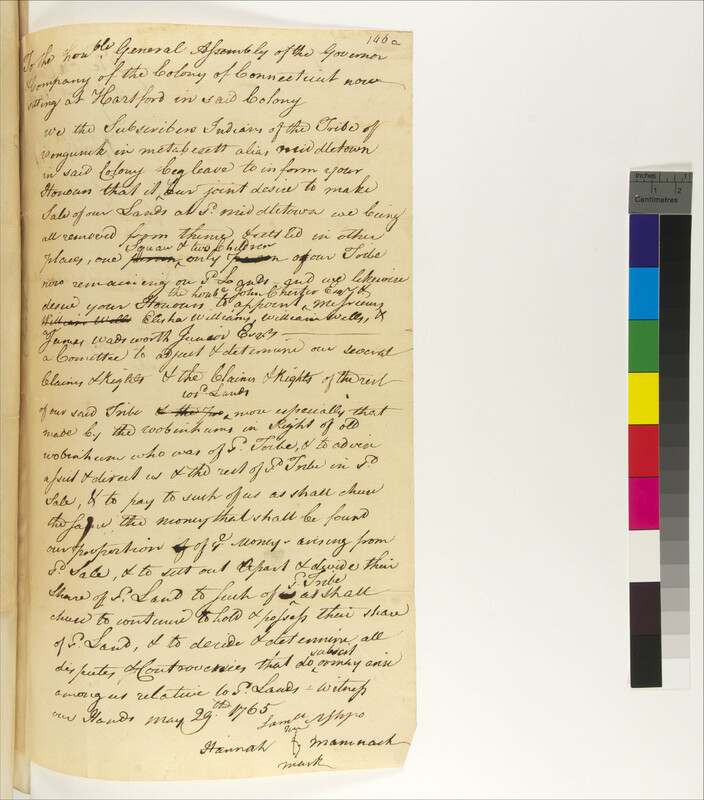 146a
To the Honble General Assembly of the Governor
Company of the Colony of Connecticut now
sitting at Hartford in said Colony
We the Subscribers Indians of the Tribe of
Wongunk in metabesett alias middletown
in said Colony beg leave to inform your
Honours that it our joint desire to make
Sale of our Lands at sd. middletown we being
all removed from thence & settled in other
Squaw & two Children
places, one person only person of our Tribe
now remaining on sd. Lands, and we likewise
the honble John Chester Esqr. &
desire your Honours to appoint Messieurs
William Wells Elisha Williams, William Wells, &
James Wadsworth Junior Esqrs
a Comittee to adjust & determine our several
Claims & Rights & the Claims & Rights of the rest
to sd. Lands
of our said Tribe & the more especially that
made by the wobinhums in Right of old
wobinhum who was of sd. Tribe, & to advise
assist & direct us & the rest of sd. Tribe in sd.
Sale, & to pay to such of us as shall chuse
the same the money that shall be found
our proportion of of ye Money arising from
sd. Sale, & to sett out apart & divide their
sd. Tribe
share of sd. Land to such of as shall
chuse to continue to hold & possess their share
of sd. Land, & to decide & determine all
subsist
disputes & Controversies that do or may arise
among us relative to sd. Lands = witness
our Hands may 29th 1765
Samll
her
Hannah Mamnash
mark